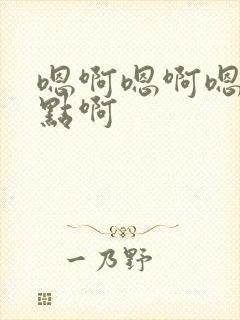 嗯啊嗯啊嗯
點啊
一乃野